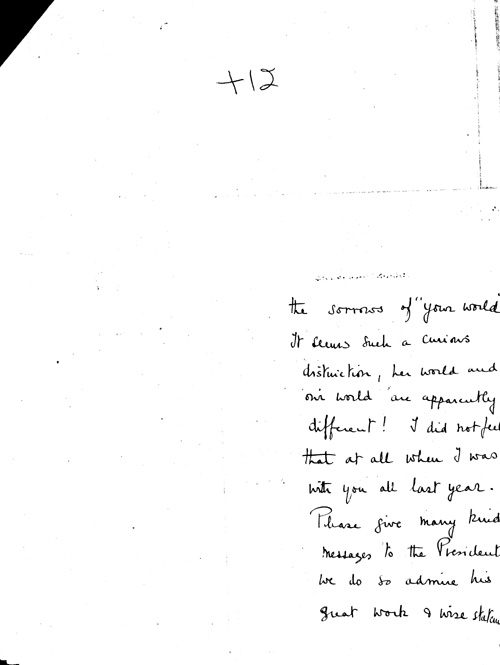 +12
the sorrows of "your world
It seems such a curious
distinction, her world and
our world are apparently
different! I did not feel
that at all when I was
with you all last year.
Please give many kind
messages to the President
we do so admire his
great work & wise